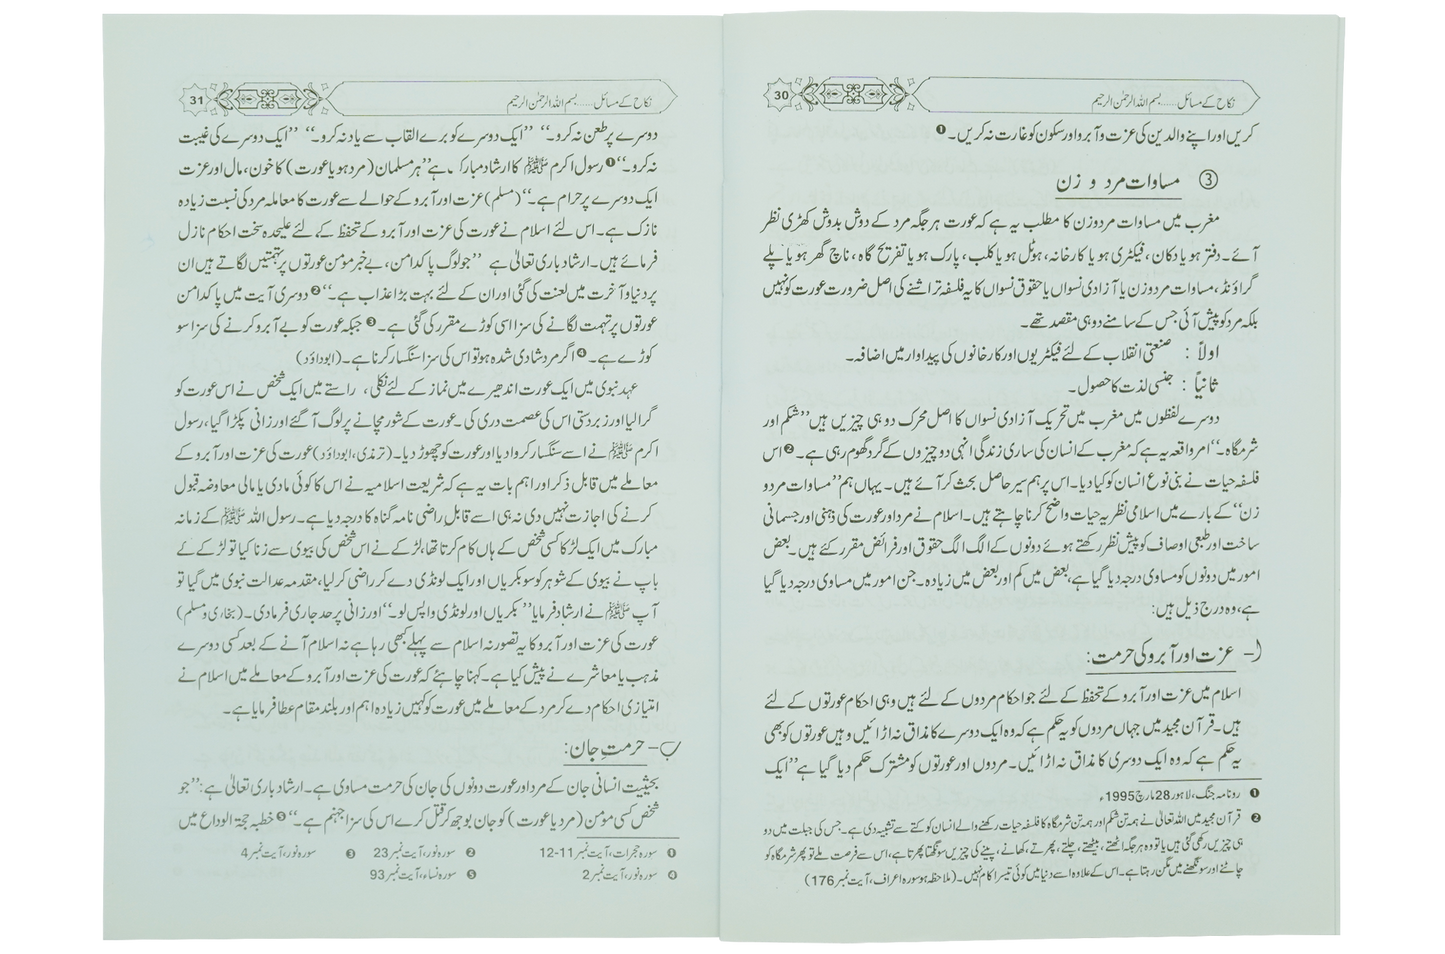 نکاح کے مسائل......بسم اللہ الرحمٰن الرحیم
30
کریں اور اپنے والدین کی عزت و آبرو اور سکون کو غارت نہ کریں۔❶
③ مساوات مرد و زن
مغرب میں مساوات مردوزن کا مطلب یہ ہے کہ عورت ہر جگہ مرد کے دوش بدوش کھڑی نظر
آئے۔ دفتر ہو یا دکان، فیکٹری ہو یا کارخانہ، ہوٹل ہو یا کلب، پارک ہو یا تفریح گاہ، ناچ گھر ہو یا پلے
گراؤنڈ، مساوات مردوزن یا آزادی نسواں یا حقوق نسواں کا یہ فلسفہ تراشنے کی اصل ضرورت عورت کو نہیں
بلکہ مرد کو پیش آئی جس کے سامنے دو ہی مقصد تھے۔
اولاً : صنعتی انقلاب کے لئے فیکٹریوں اور کارخانوں کی پیداوار میں اضافہ۔
ثانیاً : جنسی لذت کا حصول۔
دوسرے لفظوں میں مغرب میں تحریک آزادی نسواں کا اصل محرک دو ہی چیزیں ہیں ’’شکم اور
شرمگاہ۔‘‘ امر واقعہ یہ ہے کہ مغرب کے انسان کی ساری زندگی انہی دو چیزوں کے گرد گھوم رہی ہے۔❷ اس
فلسفہ حیات نے بنی نوع انسان کو کیا دیا۔ اس پر ہم سیر حاصل بحث کر آئے ہیں۔ یہاں ہم ’’مساوات مرد و
زن‘‘ کے بارے میں اسلامی نظریہ حیات واضح کرنا چاہتے ہیں۔ اسلام نے مرد اور عورت کی ذہنی اور جسمانی
ساخت اور طبعی اوصاف کو پیش نظر رکھتے ہوئے دونوں کے الگ الگ حقوق اور فرائض مقرر کئے ہیں۔ بعض
امور میں دونوں کو مساوی درجہ دیا گیا ہے، بعض میں کم اور بعض میں زیادہ۔ جن امور میں مساوی درجہ دیا گیا
ہے، وہ درج ذیل ہیں:
(ا- عزت اور آبرو کی حرمت:
اسلام میں عزت اور آبرو کے تحفظ کے لئے جو احکام مردوں کے لئے ہیں وہی احکام عورتوں کے لئے
ہیں۔ قرآن مجید میں جہاں مردوں کو یہ حکم ہے کہ وہ ایک دوسرے کا مذاق نہ اڑائیں وہیں عورتوں کو بھی
یہ حکم ہے کہ وہ ایک دوسری کا مذاق نہ اڑائیں۔ مردوں اور عورتوں کو مشترک حکم دیا گیا ہے ’’ایک
❶ رونامہ جنگ، لاہور 28 مارچ 1995ء
❷ قرآن مجید میں اللہ تعالیٰ نے ہمہ تن شکم اور ہمہ تن شرمگاہ کا فلسفہ حیات رکھنے والے انسان کو کتے سے تشبیہ دی ہے۔ جس کی جبلت میں دو
ہی چیزیں رکھی گئی ہیں یا تو وہ ہر جگہ اٹھتے، بیٹھتے، چلتے، پھرتے، کھانے، پینے کی چیزیں سونگھتا پھرتا ہے، اس سے فرصت ملے تو پھر شرمگاہ کو
چاٹنے اور سونگھنے میں مگن رہتا ہے۔ اس کے علاوہ اسے دنیا میں کوئی تیسرا کام نہیں۔ (ملاحظہ ہو سورہ اعراف، آیت نمبر 176)
نکاح کے مسائل......بسم اللہ الرحمٰن الرحیم
31
دوسرے پر طعن نہ کرو۔‘‘ ’’ایک دوسرے کو برے القاب سے یاد نہ کرو۔‘‘ ’’ایک دوسرے کی غیبت
نہ کرو۔‘‘❶ رسول اکرم ﷺ کا ارشاد مبارک ہے ’’ہر مسلمان (مرد ہو یا عورت) کا خون، مال اور عزت
ایک دوسرے پر حرام ہے۔‘‘ (مسلم) عزت اور آبرو کے حوالے سے عورت کا معاملہ مرد کی نسبت زیادہ
نازک ہے۔ اس لئے اسلام نے عورت کی عزت اور آبرو کے تحفظ کے لئے علیحدہ سخت احکام نازل
فرمائے ہیں۔ ارشاد باری تعالیٰ ہے ’’جو لوگ پاکدامن، بے خبر مومن عورتوں پر تہمتیں لگاتے ہیں ان
پر دنیا و آخرت میں لعنت کی گئی اور ان کے لئے بہت بڑا عذاب ہے۔‘‘❷ دوسری آیت میں پاکدامن
عورتوں پر تہمت لگانے کی سزا اسی کوڑے مقرر کی گئی ہے۔❸ جبکہ عورت کو بے آبرو کرنے کی سزا سو
کوڑے ہے۔❹ اگر مرد شادی شدہ ہو تو اس کی سزا سنگسار کرنا ہے۔ (ابوداؤد)
عہد نبوی میں ایک عورت اندھیرے میں نماز کے لئے نکلی، راستے میں ایک شخص نے اس عورت کو
گرا لیا اور زبردستی اس کی عصمت دری کی۔ عورت کے شور مچانے پر لوگ آ گئے اور زانی پکڑا گیا، رسول
اکرم ﷺ نے اسے سنگسار کروا دیا اور عورت کو چھوڑ دیا۔ (ترمذی، ابوداؤد) عورت کی عزت اور آبرو کے
معاملے میں قابل ذکر اور اہم بات یہ ہے کہ شریعت اسلامیہ نے اس کا کوئی مادی یا مالی معاوضہ قبول
کرنے کی اجازت نہیں دی نہ ہی اسے قابل راضی نامہ گناہ کا درجہ دیا ہے۔ رسول اللہ ﷺ کے زمانہ
مبارک میں ایک لڑکا کسی شخص کے ہاں کام کرتا تھا، لڑکے نے اس شخص کی بیوی سے زنا کیا تو لڑکے کے
باپ نے بیوی کے شوہر کو سو بکریاں اور ایک لونڈی دے کر راضی کر لیا، مقدمہ عدالت نبوی میں گیا تو
آپ ﷺ نے ارشاد فرمایا ’’بکریاں اور لونڈی واپس لو۔‘‘ اور زانی پر حد جاری فرما دی۔ (بخاری و مسلم)
عورت کی عزت اور آبرو کا یہ تصور نہ اسلام سے پہلے کبھی رہا ہے نہ اسلام آنے کے بعد کسی دوسرے
مذہب یا معاشرے نے پیش کیا ہے۔ کہنا چاہئے کہ عورت کی عزت اور آبرو کے معاملے میں اسلام نے
امتیازی احکام دے کر مرد کے معاملے میں عورت کو کہیں زیادہ اہم اور بلند مقام عطا فرمایا ہے۔
ب- حرمتِ جان:
بحیثیت انسانی جان کے مرد اور عورت دونوں کی جان کی حرمت مساوی ہے۔ ارشاد باری تعالیٰ ہے: ’’جو
شخص کسی مؤمن (مرد یا عورت) کو جان بوجھ کر قتل کرے اس کی سزا جہنم ہے۔‘‘❺ خطبہ حجۃ الوداع میں
❶ سورہ حجرات، آیت نمبر 11-12 ❷ سورہ نور، آیت نمبر 23 ❸ سورہ نور، آیت نمبر 4
❹ سورہ نور، آیت نمبر 2 ❺ سورہ نساء، آیت نمبر 93